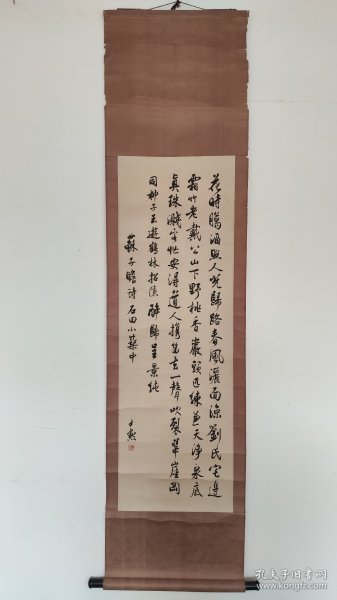 花時臘酒照人光歸路春風灑面涼劉氏宅邊
霜竹老戴公山下野桃香巖頭匹練兼天淨泉底
真珠濺客忙安得道人攜笛去一聲吹裂翠崖岡
同柳子玉遊鶴林招隱醉歸呈景純
蘇子瞻詩 石田小築中
尹默
孔夫子旧书网